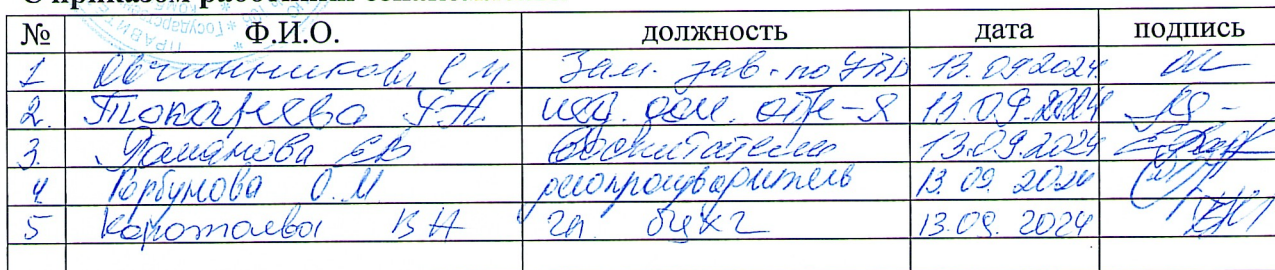 С приказом работники ознакомлены
№ Ф.И.О. должность дата подпись
1 Овчинникова С М. Зам. зав. по УВР 13.09.2024
2. Токарева 13.09.2024
3. Романова ЕВ воспитатель 13.09.2024
4 Горбунова О.М делопроизводитель 13.09.2024
5 Коротаева В Н гл бухг 13.09.2024